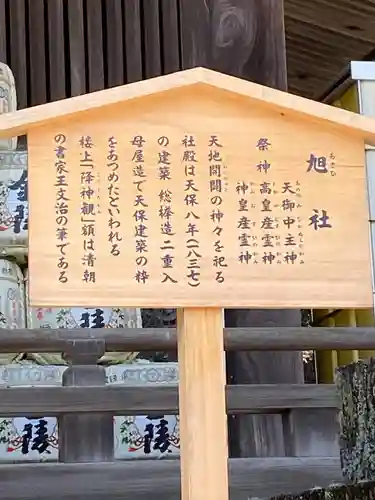 旭社
あさひ
祭神
天御中主神
あめのみなかぬしのかみ
高皇産霊神
神皇産霊神
天地開闢の神々を祀る
社殿は天保八年(一八三七)
の建築 総欅造二重入
母屋造で天保建築の粋
をあつめたといわれる
楼上「降神観」額は清朝
の書家王文治の筆である
金陵
陵
陵